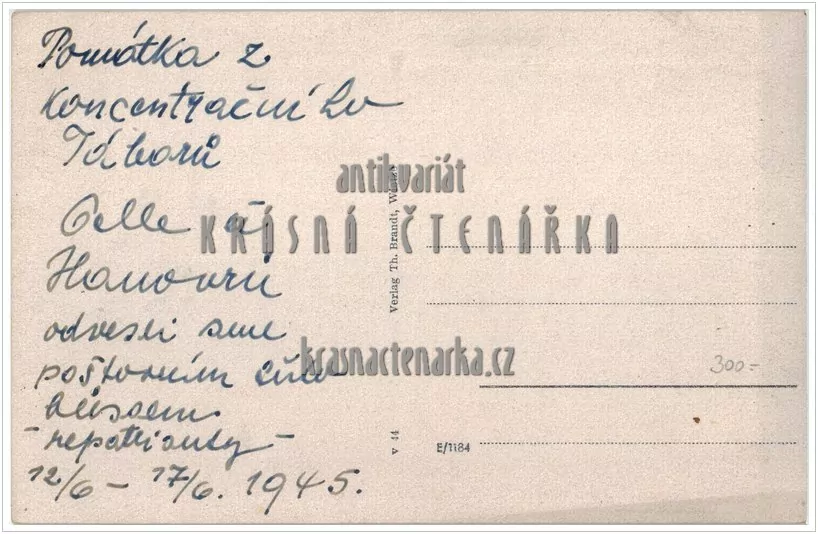 Pomátka z
Koncentračního
Táborů
Celle
Hanovrů
odvesli sme
poštovním
-repatrianty-
12/6 - 17/6. 1945.
antikvariát
KRÁSNÁ ČTENÁŘKA
krasnactenarka.cz
Verlag Th. Brandt,
v 44
E/1184
300=